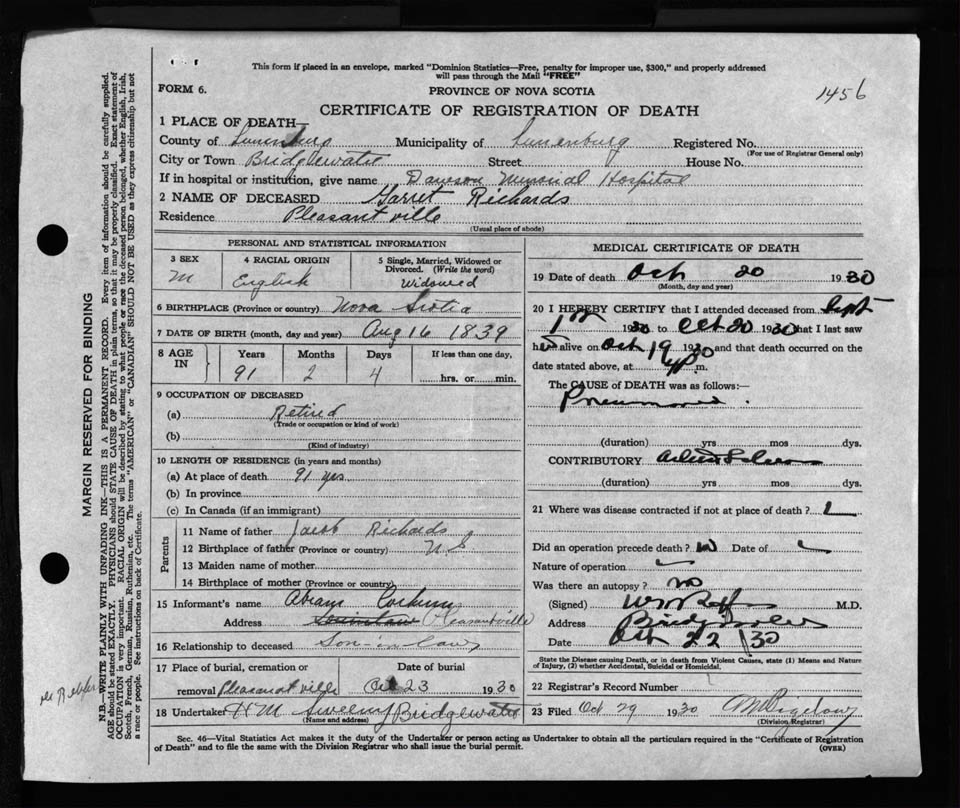 This form if placed in an envelope, marked "Dominion Statistics—Free, penalty for improper use, $300," and properly addressed
will pass through the Mail "FREE"
FORM 6.
PROVINCE OF NOVA SCOTIA
1456
CERTIFICATE OF REGISTRATION OF DEATH
1 PLACE OF DEATH—
County of Lunenburg Municipality of Lunenburg Registered No.
(For use of Registrar General only)
City or Town Bridgewater Street House No.
If in hospital or institution, give name Dawson Memorial Hospital
2 NAME OF DECEASED Garret Richards
Residence Pleasantville
(Usual place of abode)
PERSONAL AND STATISTICAL INFORMATION
3 SEX 4 RACIAL ORIGIN 5 Single, Married, Widowed or Divorced. (Write the word)
M English Widowed
6 BIRTHPLACE (Province or country) Nova Scotia
7 DATE OF BIRTH (month, day and year) Aug 16 1839
8 AGE IN Years Months Days If less than one day,
91 2 4 hrs. or min.
9 OCCUPATION OF DECEASED
(a) Retired
(Trade or occupation or kind of work)
(b)
(Kind of industry)
10 LENGTH OF RESIDENCE (in years and months)
(a) At place of death 91 yrs
(b) In province
(c) In Canada (if an immigrant)
Parents
11 Name of father Jacob Richards
12 Birthplace of father (Province or country) N S
13 Maiden name of mother
14 Birthplace of mother (Province or country)
15 Informant's name Abram Corkum
Address Pleasantville
16 Relationship to deceased Son in law
17 Place of burial, cremation or Date of burial
removal Pleasantville Oct 23 1930
18 Undertaker H M Sweeny Bridgewater
(Name and address)
MEDICAL CERTIFICATE OF DEATH
19 Date of death Oct 20 1930
(Month, day and year)
20 I HEREBY CERTIFY that I attended deceased from Sept
1st 1930 to Oct 20 1930 that I last saw
him alive on Oct 19 1930 and that death occurred on the
date stated above, at 4 p m.
The CAUSE OF DEATH was as follows:—
Pneumonia.
(duration) yrs mos dys.
CONTRIBUTORY
(duration) yrs mos dys.
21 Where was disease contracted if not at place of death?
Did an operation precede death? no Date of
Nature of operation
Was there an autopsy? no
(Signed) M.D.
Address Bridgewater
Date Oct 22 /30
State the Disease causing Death, or in death from Violent Causes, state (1) Means and Nature
of Injury, (2) whether Accidental, Suicidal or Homicidal.
22 Registrar's Record Number
23 Filed Oct 29 1930
(Division Registrar)
Sec. 46—Vital Statistics Act makes it the duty of the Undertaker or person acting as Undertaker to obtain all the particulars required in the "Certificate of Registration
of Death" and to file the same with the Division Registrar who shall issue the burial permit.
(OVER)
MARGIN RESERVED FOR BINDING
N.B.—WRITE PLAINLY WITH UNFADING INK—THIS IS A PERMANENT RECORD. Every item of information should be carefully supplied.
AGE should be stated EXACTLY. PHYSICIANS should STATE CAUSE OF DEATH in plain terms, so that it may be properly classified. Exact statement of
OCCUPATION is very important. RACIAL ORIGIN will be described by stating to what people or race the deceased person belonged, whether English, Irish,
Scotch, French, German, Russian, Ruthenian, etc. The terms "AMERICAN" or "CANADIAN" SHOULD NOT BE USED as they express citizenship but not
a race or people. See instructions on back of Certificate.